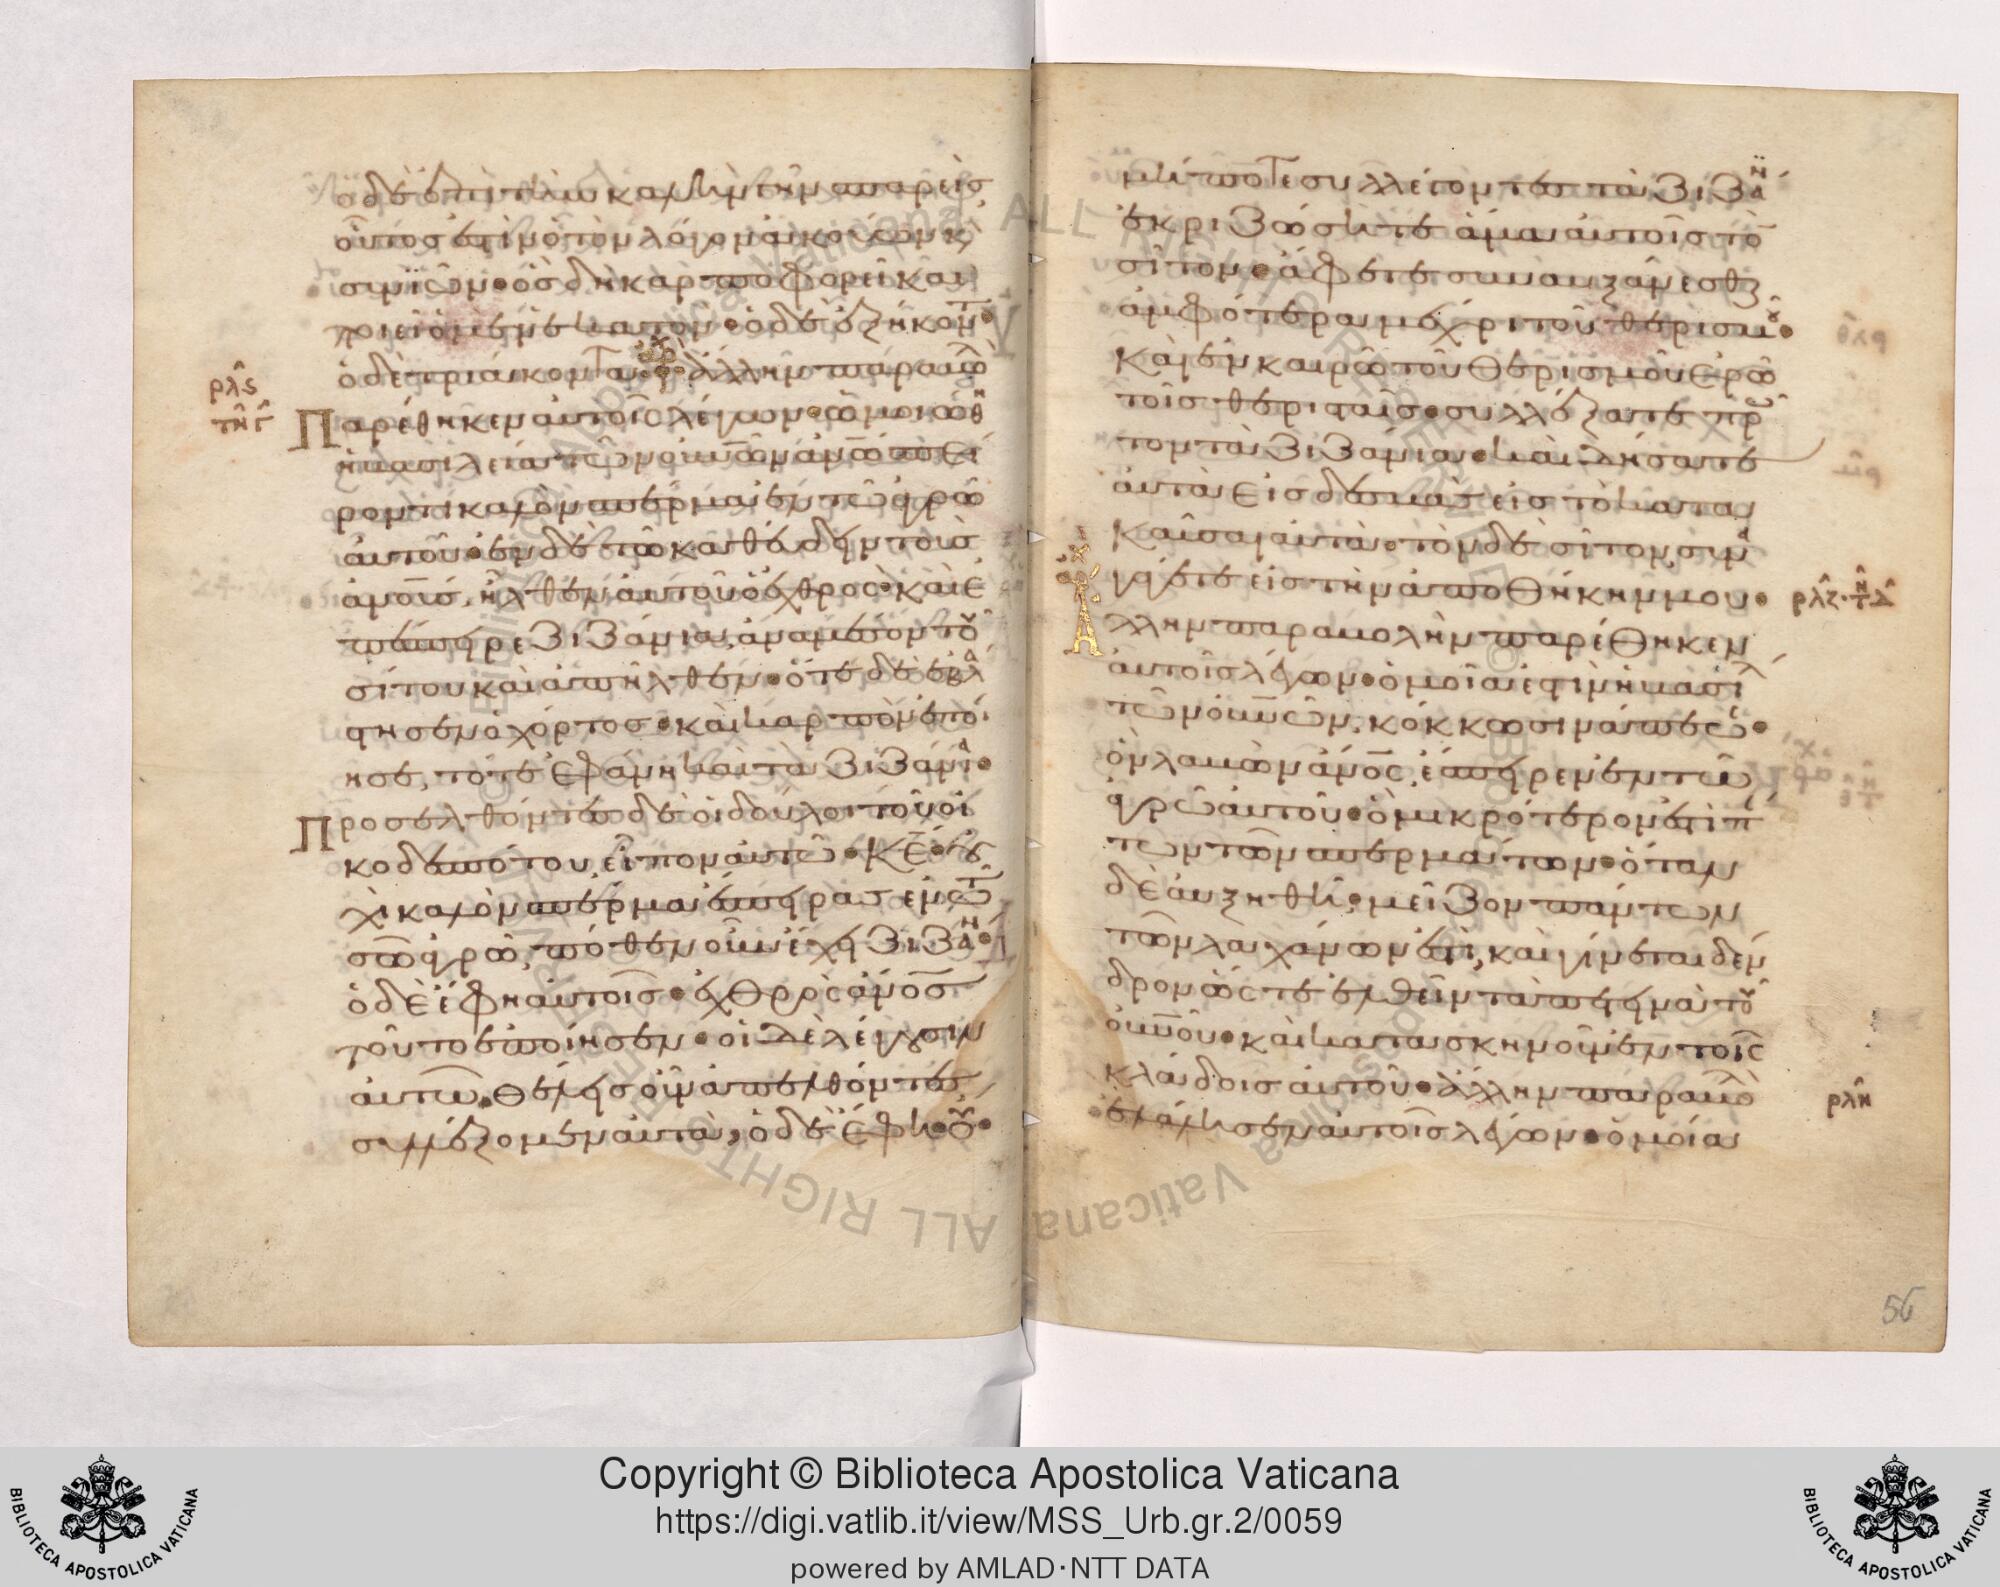 ὁ δὲ ἐπὶ τὴν καλὴν γῆν σπαρεὶς
οὗτός ἐστιν ὁ τὸν λόγον ἀκούων κ(αὶ)
συνιῶν· ὃς δὴ καρποφορεῖ καὶ
ποιεῖ ὁ μὲν ἑκατὸν· ὁ δὲ ἑξήκοντ
ὁ δὲ τριάκοντα· ἄλλην παραβολ
Παρέθηκεν αὐτοῖς λέγων· ὡμοιώθη
ἡ βασιλεία τῶν οὐνῶν ἀνῶ σπεί
ροντι καλὸν σπέρμα ἐν τῷ ἀγρῷ
αὐτοῦ· ἐν δὲ τῷ καθεύδειν τοὺς
ἀνοῦς, ἦλθεν αὐτοῦ ὁ ἐχθρὸς καὶ ἔ
σπειρε ζιζάνια ἀναμέσον τοῦ
σίτου καὶ ἀπῆλθεν· ὅτε δὲ ἐβλά
στησεν ὁ χόρτος· καὶ καρπὸν ἐποί
ησε, τότε ἐφάνη καὶ τὰ ζιζάνια·
Προσελθόντες δὲ οἱ δοῦλοι τοῦ οἰ
κοδεσπότου, εἶπον αὐτῷ· κε· οὐ
χὶ καλὸν σπέρμα ἔσπειρας ἐν τῷ
σῷ ἀγρῷ, πόθεν οὖν ἔχει ζιζάνι
ὁ δὲ ἔφη αὐτοῖς· ἐχθρὸς ἀνος
τοῦτο ἐποίησεν· οἱ δὲ λέγουσιν
αὐτῷ. θέλεις οὖν ἀπελθόντες
συλλέξομεν αὐτά, ὁ δὲ ἔφη· οὔ·
ρλς
τη γ
μήποτε συλλέγοντες τὰ ζιζάνι
ἐκριζώσητε ἅμα αὐτοῖς τὸ
σῖτον· ἄφετε συναυξάνεσθαι
ἀμφότερα μέχρι τοῦ θερισμοῦ·
καὶ ἐν καιρῷ τοῦ θερισμοῦ ἐρῶ
τοῖς θερισταῖς· συλλέξατε πρῶ
τον τὰ ζιζάνια· καὶ δήσατε
αὐτὰ εἰς δεσμὰς εἰς τὸ κατα
καῦσαι αὐτά· τὸν δὲ σῖτον, συνα
γάγετε εἰς τὴν ἀποθήκην μου·
Ἄλλην παραβολὴν παρέθηκεν
αὐτοῖς λέγων· ὁμοία ἐστὶν ἡ βασιλ
τῶν οὐνῶν, κόκκῳ σινάπεως·
ὃν λαβὼν ἀνος, ἔσπειρεν ἐν τῷ
ἀγρῷ αὐτοῦ· ὃ μικρότερόν ἐστι πά
των τῶν σπερμάτων· ὅταν
δὲ αὐξηθῇ, μεῖζον πάντων
τῶν λαχάνων ἐστί, καὶ γίνεται δέν
δρον ὥστε ἐλθεῖν τὰ πετεινὰ τοῦ
οὐνοῦ· καὶ κατασκηνοῦν ἐν τοῖς
κλάδοις αὐτοῦ· ἄλλην παραβολ
ἐλάλησεν αὐτοῖς λέγων· ὁμοία
ρλζ
ρλη
56
Copyright © Biblioteca Apostolica Vaticana
https://digi.vatlib.it/view/MSS_Urb.gr.2/0059
powered by AMLAD·NTT DATA
BIBLIOTECA APOSTOLICA VATICANA
BIBLIOTECA APOSTOLICA VATICANA